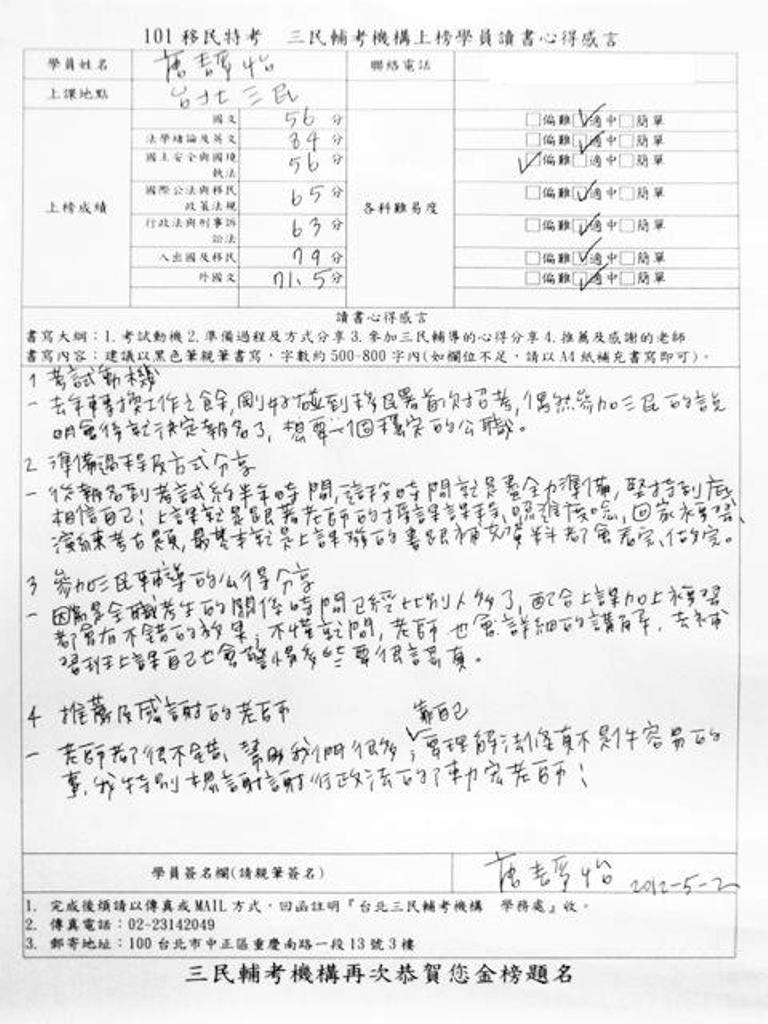 101 移民特考　三民輔考機構上榜學員讀書心得感言
學員姓名 唐 怡 聯絡電話
上課地點 台北三民
上榜成績 各科難易度
國文 56 分 □偏難☑適中□簡單
法學緒論及英文 84 分 □偏難☑適中□簡單
國土安全與國境執法 56 分 ☑偏難□適中□簡單
國際公法與移民政策法規 65 分 □偏難☑適中□簡單
行政法與刑事訴訟法 63 分 □偏難☑適中□簡單
入出國及移民 79 分 □偏難☑適中□簡單
外國文 71.5 分 □偏難☑適中□簡單
讀書心得感言
書寫大綱：1.考試動機 2.準備過程及方式分享 3.參加三民輔導的心得分享 4.推薦及感謝的老師
書寫內容：建議以黑色筆親筆書寫，字數約 500-800 字內(如欄位不足，請以 A4 紙補充書寫即可)。
1 考試動機
- 去年轉換工作之餘,剛好碰到移民署首次招考,偶然參加三民的說
明會後就決定報名了,想要一個穩定的公職。
2 準備過程及方式分享
- 從報名到考試約半年時間,這段時間就是盡全力準備,堅持到底
相信自己;上課就是跟著老師的 課 回家複習、
演練考古題,最基本就是上課發的書跟補充資料都會看完、做完。
3 參加三民輔導的心得分享
- 因為是全職考生的關係時間已經比別人多了,配合上課加上複習
都會有不錯的效果;不懂就問,老師也會詳細的講解,去補
習班上課自己也會警惕多些要很認真。
4 推薦及感謝的老師
- 老師都很不錯,幫助我們很多,靠自己要理解法條真不是件容易的
事,我特別想謝謝行政法的 老師!
學員簽名欄(請親筆簽名) 唐 怡 2012-5-2
1. 完成後煩請以傳真或 MAIL 方式，回函註明『台北三民輔考機構　學務處』收。
2. 傳真電話：02-23142049
3. 郵寄地址：100 台北市中正區重慶南路一段 13 號 3 樓
三民輔考機構再次恭賀您金榜題名